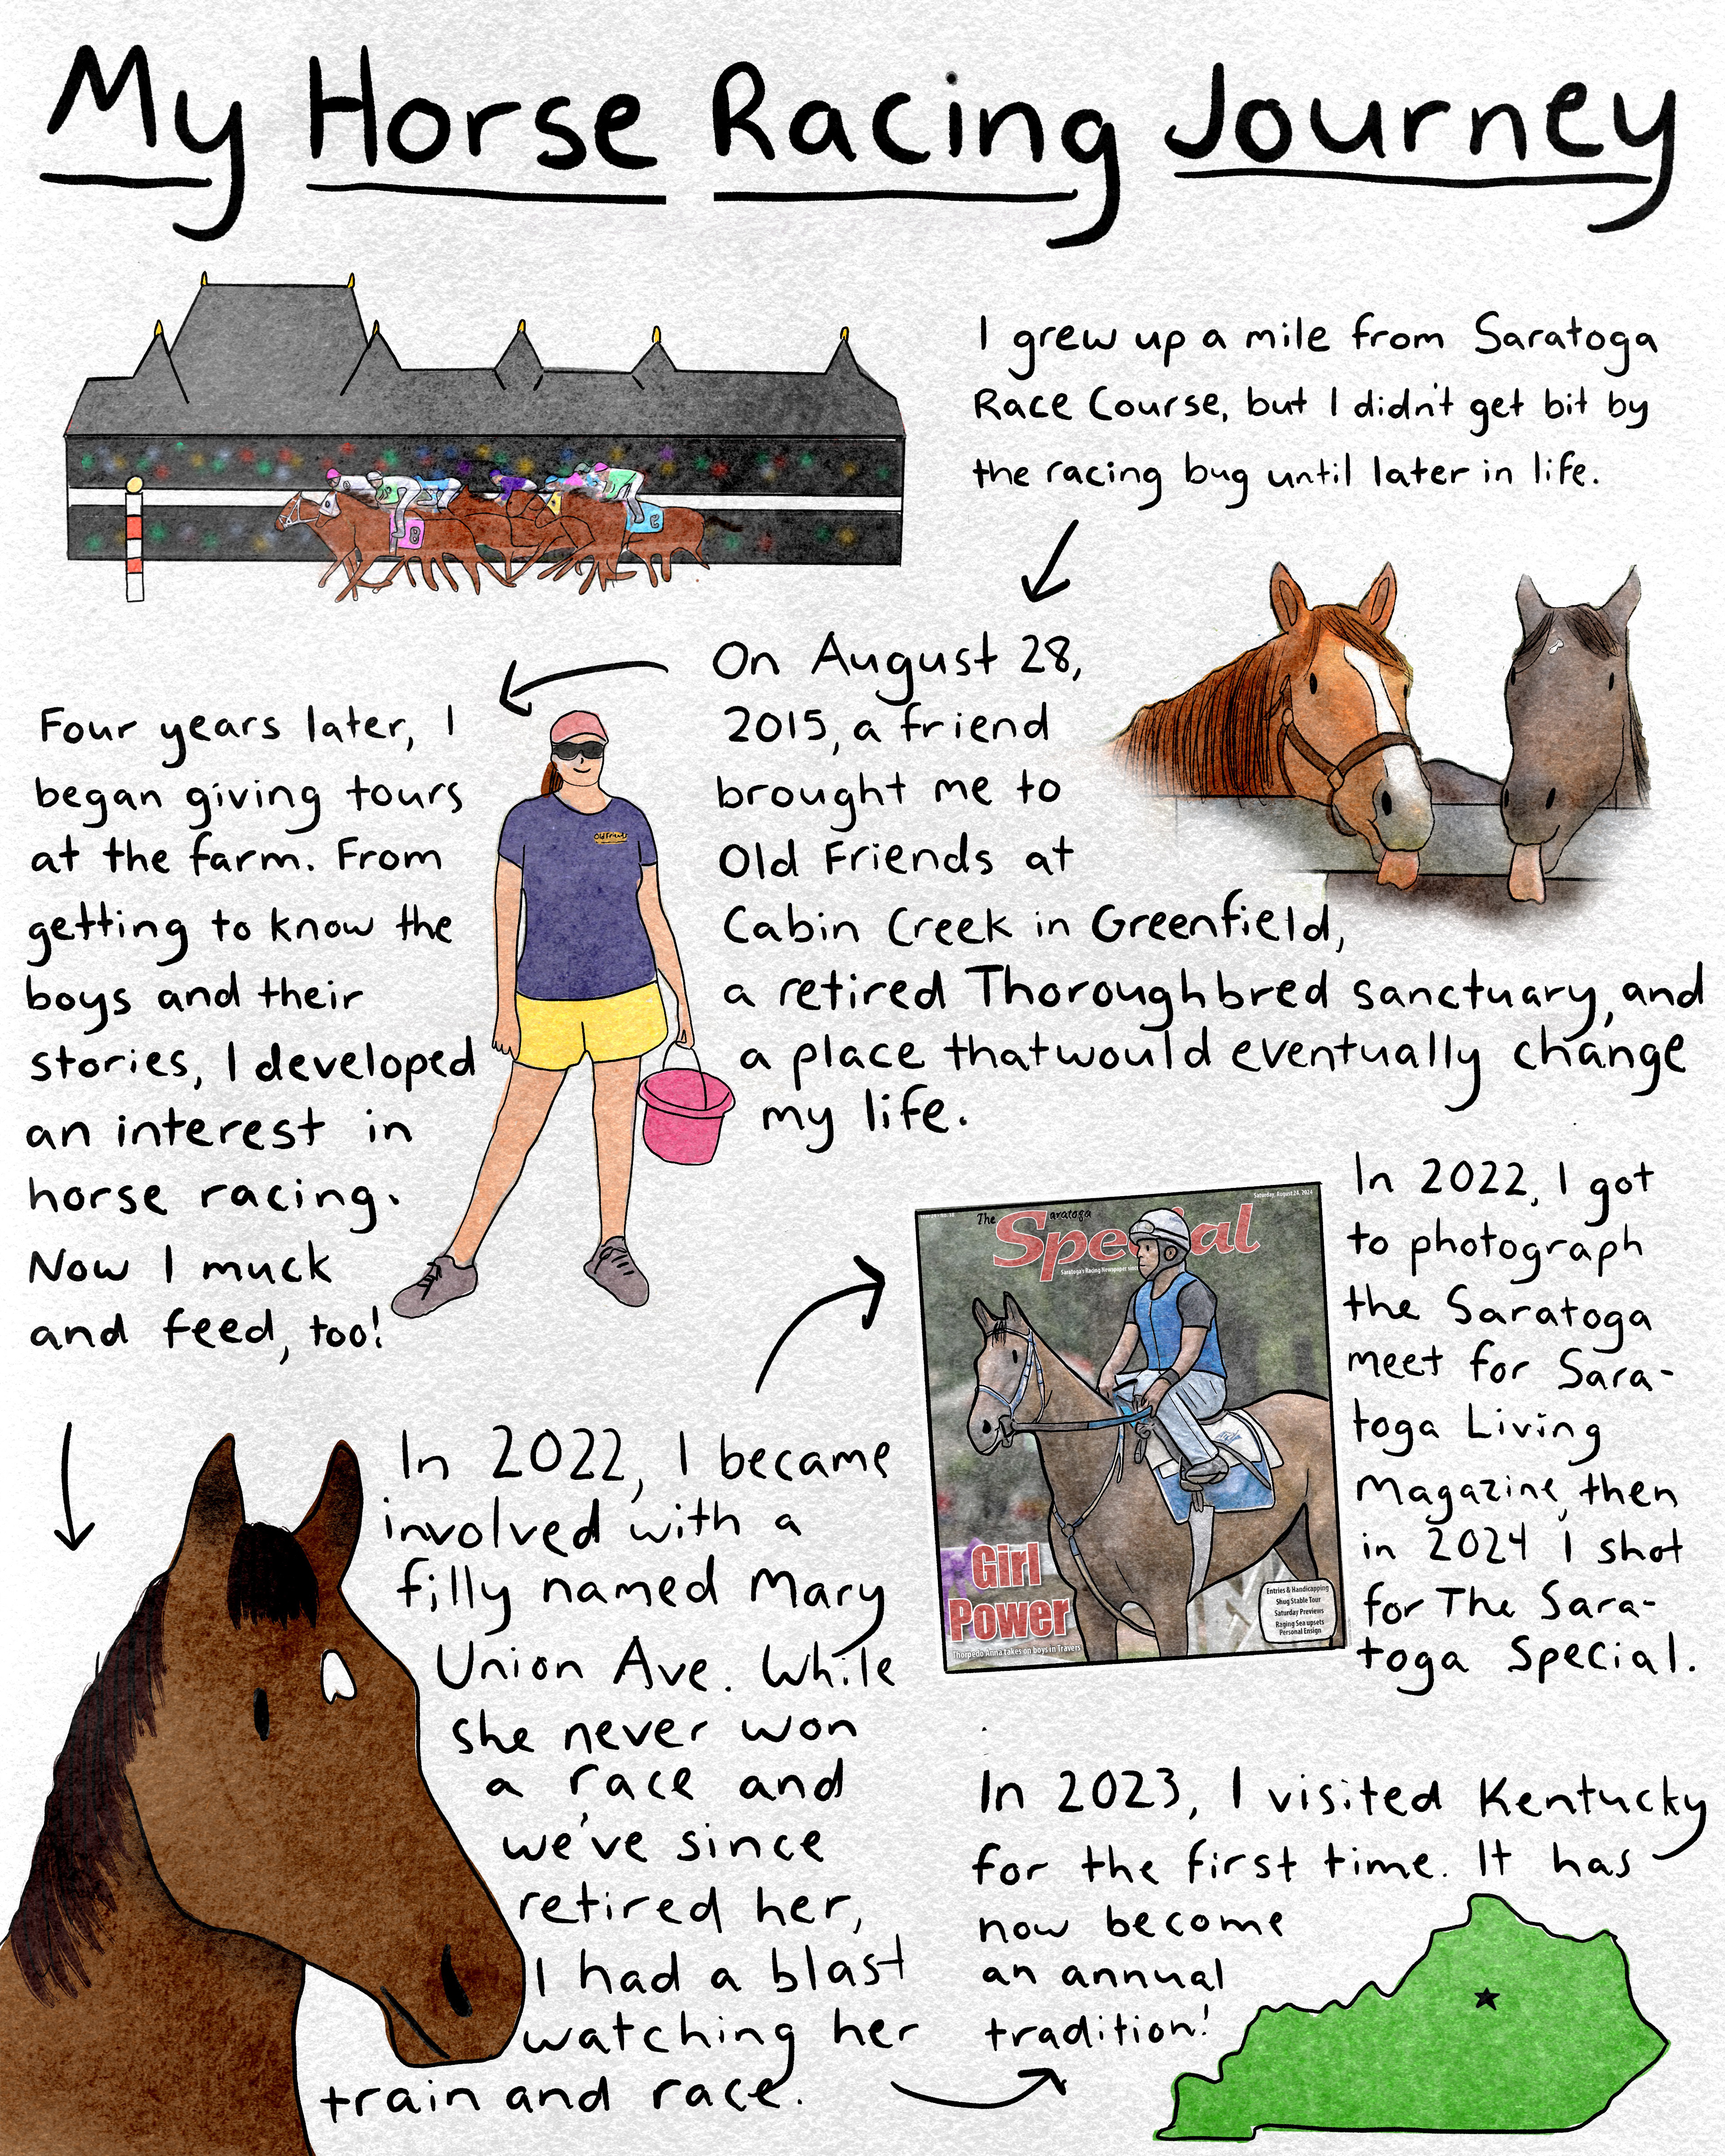 My Horse Racing Journey
I grew up a mile from Saratoga
Race Course, but I didn't get bit by
the racing bug until later in life.
On August 28,
2015, a friend
brought me to
Old Friends at
Cabin Creek in Greenfield,
a retired Thoroughbred sanctuary, and
a place that would eventually change
my life.
Four years later, I
began giving tours
at the farm. From
getting to know the
boys and their
stories, I developed
an interest in
horse racing.
Now I muck
and feed, too!
Old Friends
8
In 2022, I became
involved with a
filly named Mary
Union Ave. While
she never won
a race and
we've since
retired her,
I had a blast
watching her
train and race.
In 2022, I got
to photograph
the Saratoga
meet for Sara-
toga Living
Magazine, then
in 2024 I shot
for The Sara-
toga Special.
Saturday, August 24, 2024
The Saratoga
Special
Saratoga's Racing Newspaper since
Girl
Power
Thorpedo Anna takes on boys in Travers
Entries & Handicapping
Shug Stable Tour
Saturday Previews
Raging Sea upsets
Personal Ensign
In 2023, I visited Kentucky
for the first time. It has
now become
an annual
tradition!